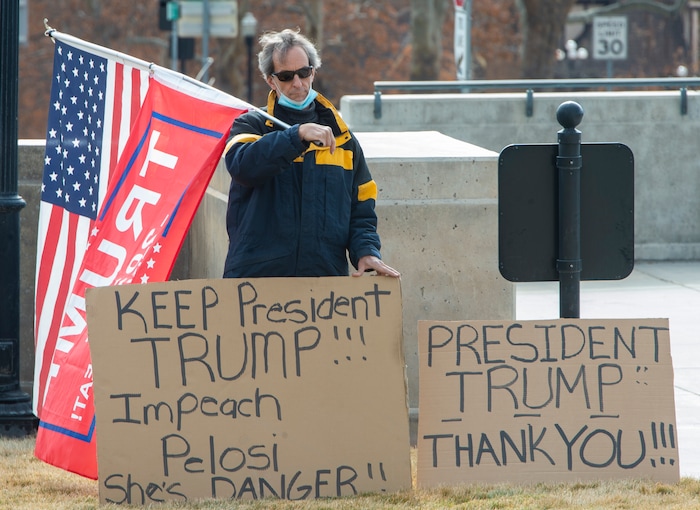 SPEED
LIMIT
30
TRUMP
KEEP President
TRUMP!!!
Impeach
Pelosi
She's DANGER!!
PRESIDENT
TRUMP
THANK YOU!!!